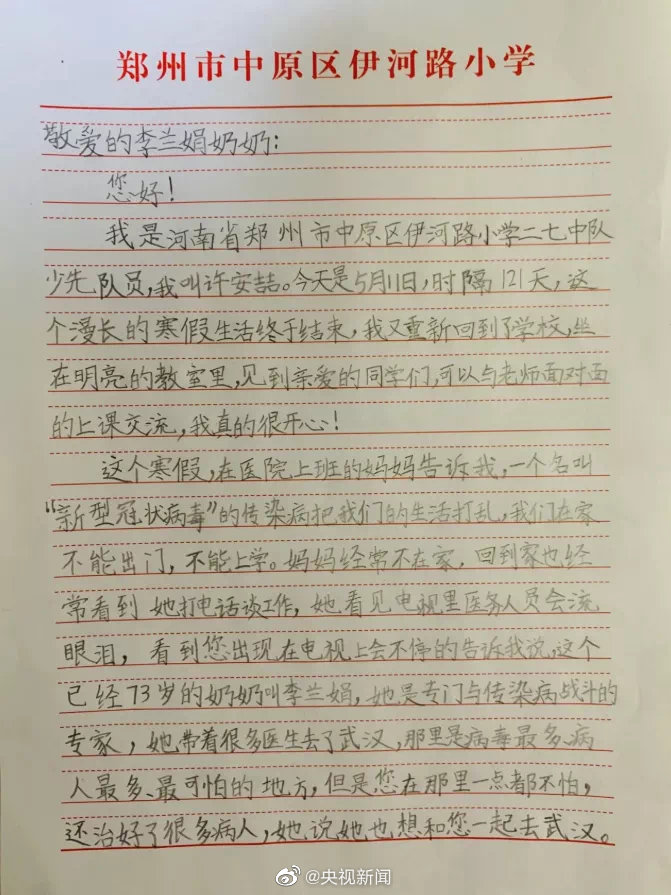 郑州市中原区伊河路小学
敬爱的李兰娟奶奶:
您好!
我是河南省郑州市中原区伊河路小学二七中队
少先队员,我叫许安喆。今天是5月11日,时隔121天,这
个漫长的寒假生活终于结束,我又重新回到了学校,坐
在明亮的教室里,见到亲爱的同学们,可以与老师面对面
的上课交流,我真的很开心!
这个寒假,在医院上班的妈妈告诉我,一个名叫
“新型冠状病毒”的传染病把我们的生活打乱,我们在家
不能出门,不能上学。妈妈经常不在家,回到家也经
常看到她打电话谈工作,她看见电视里医务人员会流
眼泪,看到您出现在电视上会不停的告诉我说,这个
已经73岁的奶奶叫李兰娟,她是专门与传染病战斗的
专家,她带着很多医生去了武汉,那里是病毒最多、病
人最多、最可怕的地方,但是您在那里一点都不怕,
还治好了很多病人,她说她也想和您一起去武汉。
@央视新闻